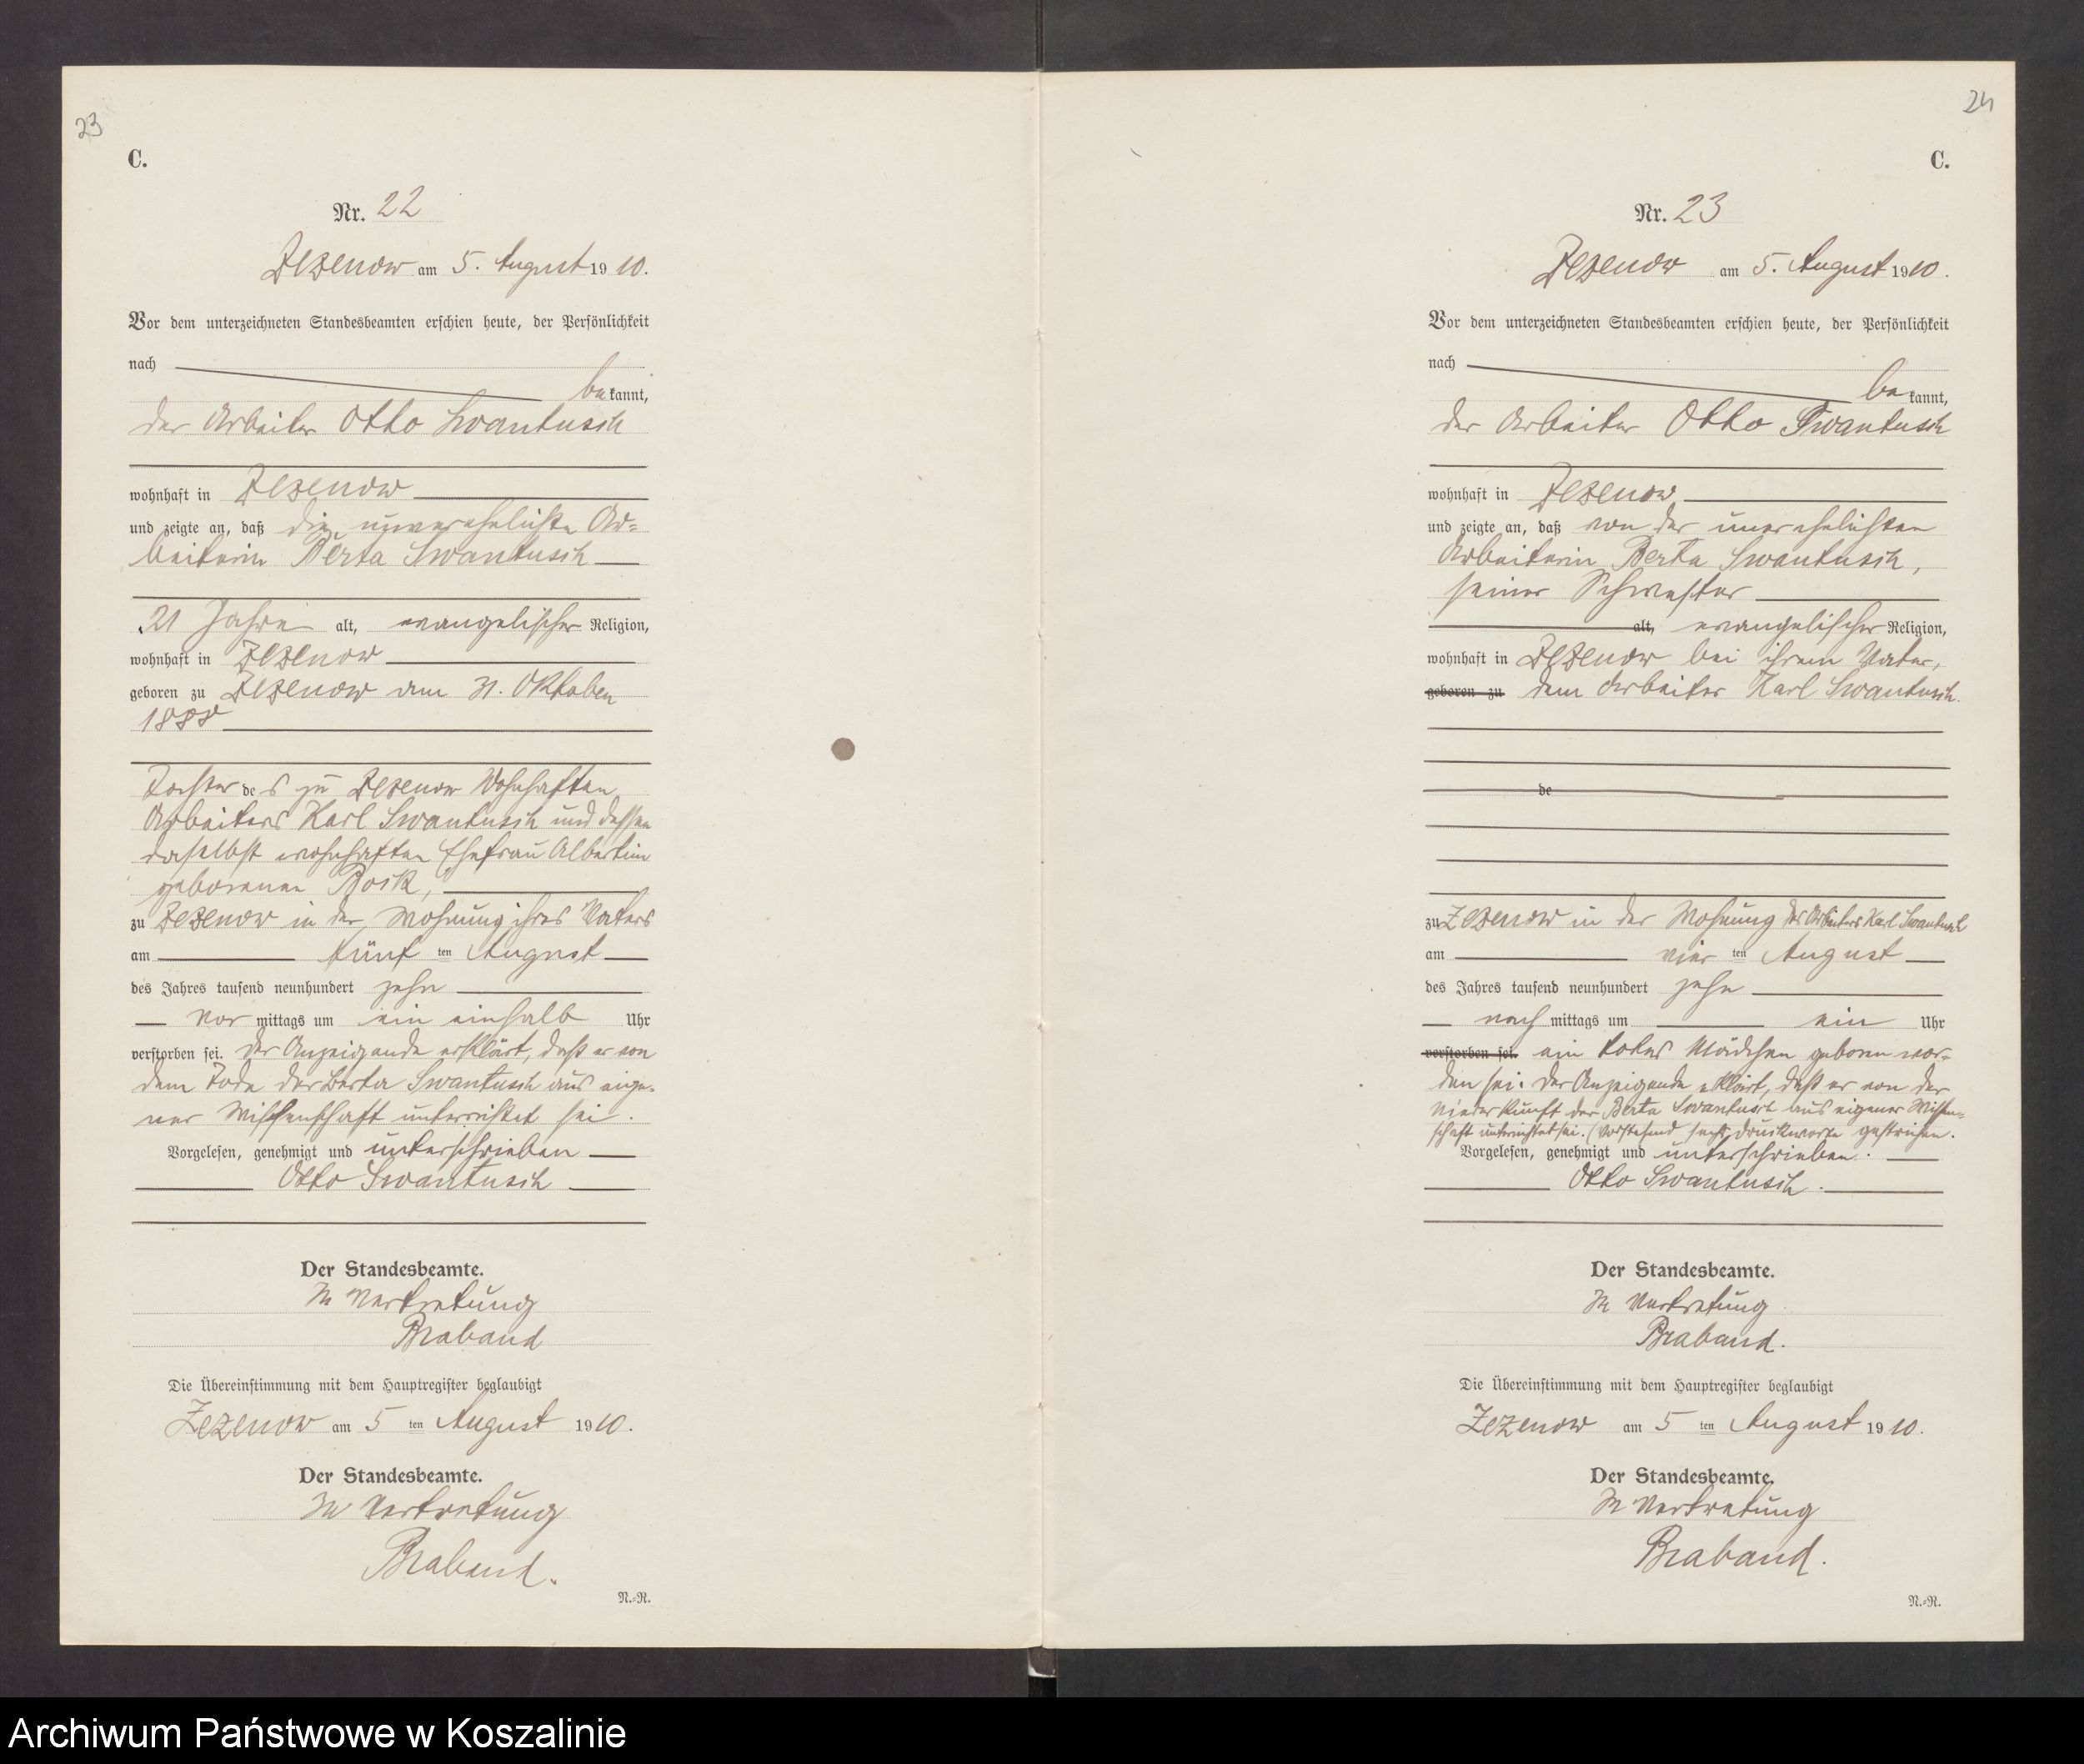 23
C.
Nr. 22
Zezenow am 5. August 1910.
Vor dem unterzeichneten Standesbeamten erschien heute, der Persönlichkeit
nach
bekannt,
der Arbeiter Otto Swantusch
wohnhaft in Zezenow
und zeigte an, daß die unverehelichte Ar=
beiterin Berta Swantusch
21 Jahre alt, evangelischer Religion,
wohnhaft in Zezenow
geboren zu Zezenow am 31. Oktober
1888
Tochter des zu Zezenow wohnhaften
Arbeiters Karl Swantusch und dessen
daselbst wohnhaften Ehefrau Albertine
geborenen Bock,
zu Zezenow in der Wohnung ihres Vaters
am fünften August
des Jahres tausend neunhundert zehn
vormittags um ein einhalb Uhr
verstorben sei. Der Anzeigende erklärt, daß er von
dem Tode der Berta Swantusch aus eige-
ner Wissenschaft unterrichtet sei.
Vorgelesen, genehmigt und unterschrieben
Otto Swantusch
Der Standesbeamte.
In Vertretung
Braband
Die Übereinstimmung mit dem Hauptregister beglaubigt
Zezenow am 5ten August 1910.
Der Standesbeamte.
In Vertretung
Braband.
N.=R.
24
C.
Nr. 23
Zezenow am 5. August 1910.
Vor dem unterzeichneten Standesbeamten erschien heute, der Persönlichkeit
nach
bekannt,
der Arbeiter Otto Swantusch
wohnhaft in Zezenow
und zeigte an, daß von der unverehelichten
Arbeiterin Berta Swantusch,
seiner Schwester
alt, evangelischer Religion,
wohnhaft in Zezenow bei ihrem Vater,
geboren zu dem Arbeiter Karl Swantusch.
de
zu Zezenow in der Wohnung des Arbeiters Karl Swantusch
am vierten August
des Jahres tausend neunhundert zehn
nachmittags um ein Uhr
verstorben sei. ein totes Mädchen geboren wor=
den sei. Der Anzeigende erklärt, daß er von der
Niederkunft der Berta Swantusch aus eigener Wissen=
schaft unterrichtet sei. (Vorstehend sechs Druckworte gestrichen.
Vorgelesen, genehmigt und unterschrieben.
Otto Swantusch.
Der Standesbeamte.
In Vertretung
Braband.
Die Übereinstimmung mit dem Hauptregister beglaubigt
Zezenow am 5ten August 1910.
Der Standesbeamte.
In Vertretung
Braband.
N.=R.
Archiwum Państwowe w Koszalinie